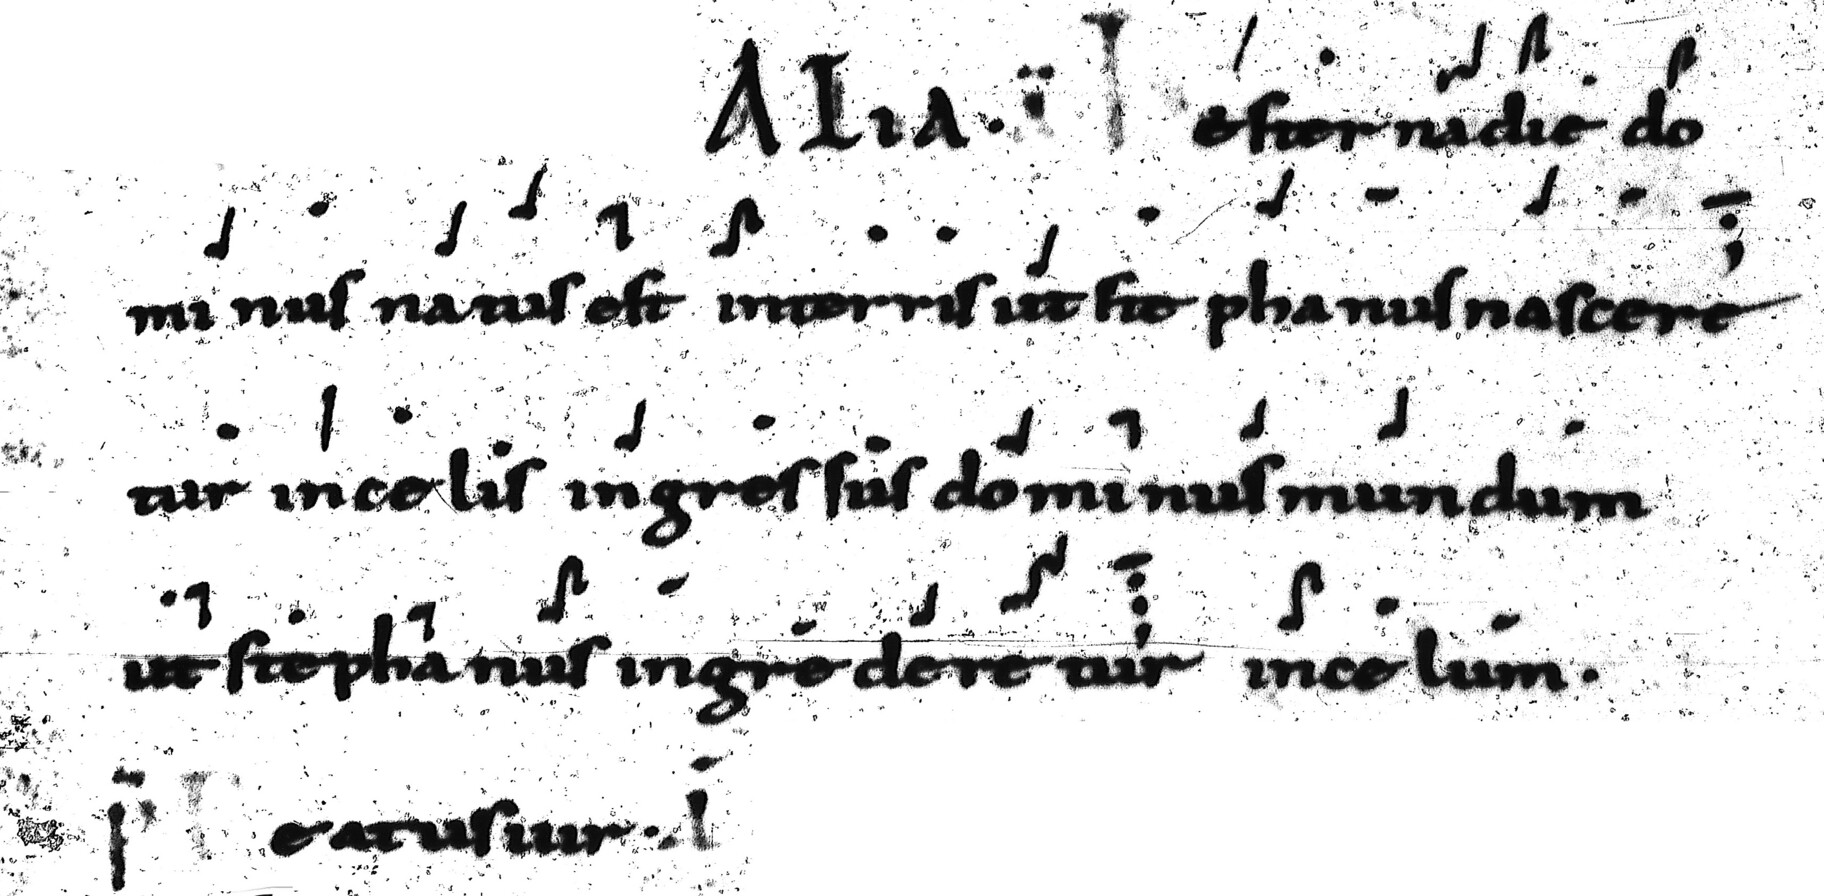 ALIA. esterna die do
minus natus est interris ut stephanus nascere
tur incelis ingressus dominus mundum
ut stephanus ingrederetur incelum.
eatus uir.